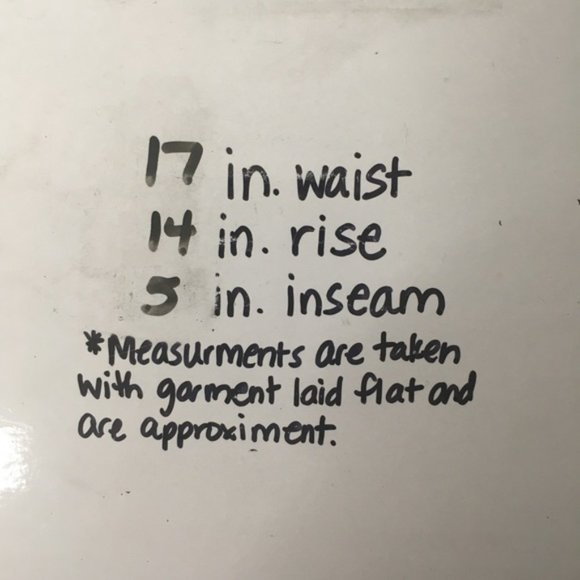 17 in. waist
14 in. rise
5 in. inseam
*Measurments are taken
with garment laid flat and
are approximent.